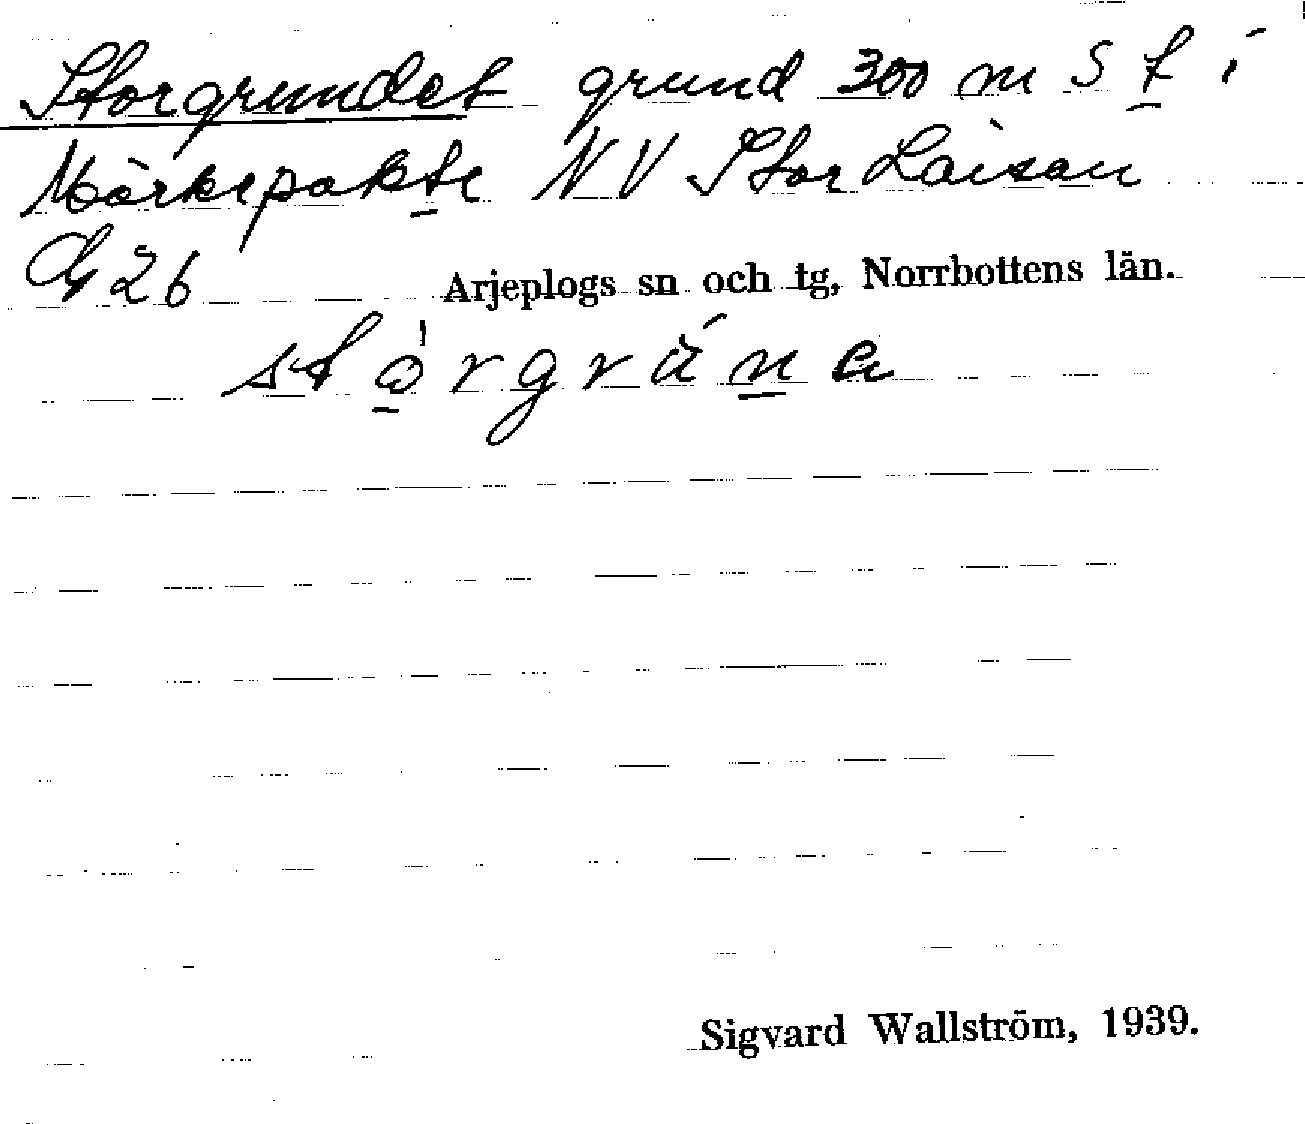 Storgrundet grund 300 m S t i
Mörkepakte NV Stor Laisan
26
Arjeplogs sn och tg, Norrbottens län.
Sigvard Wallström, 1939.